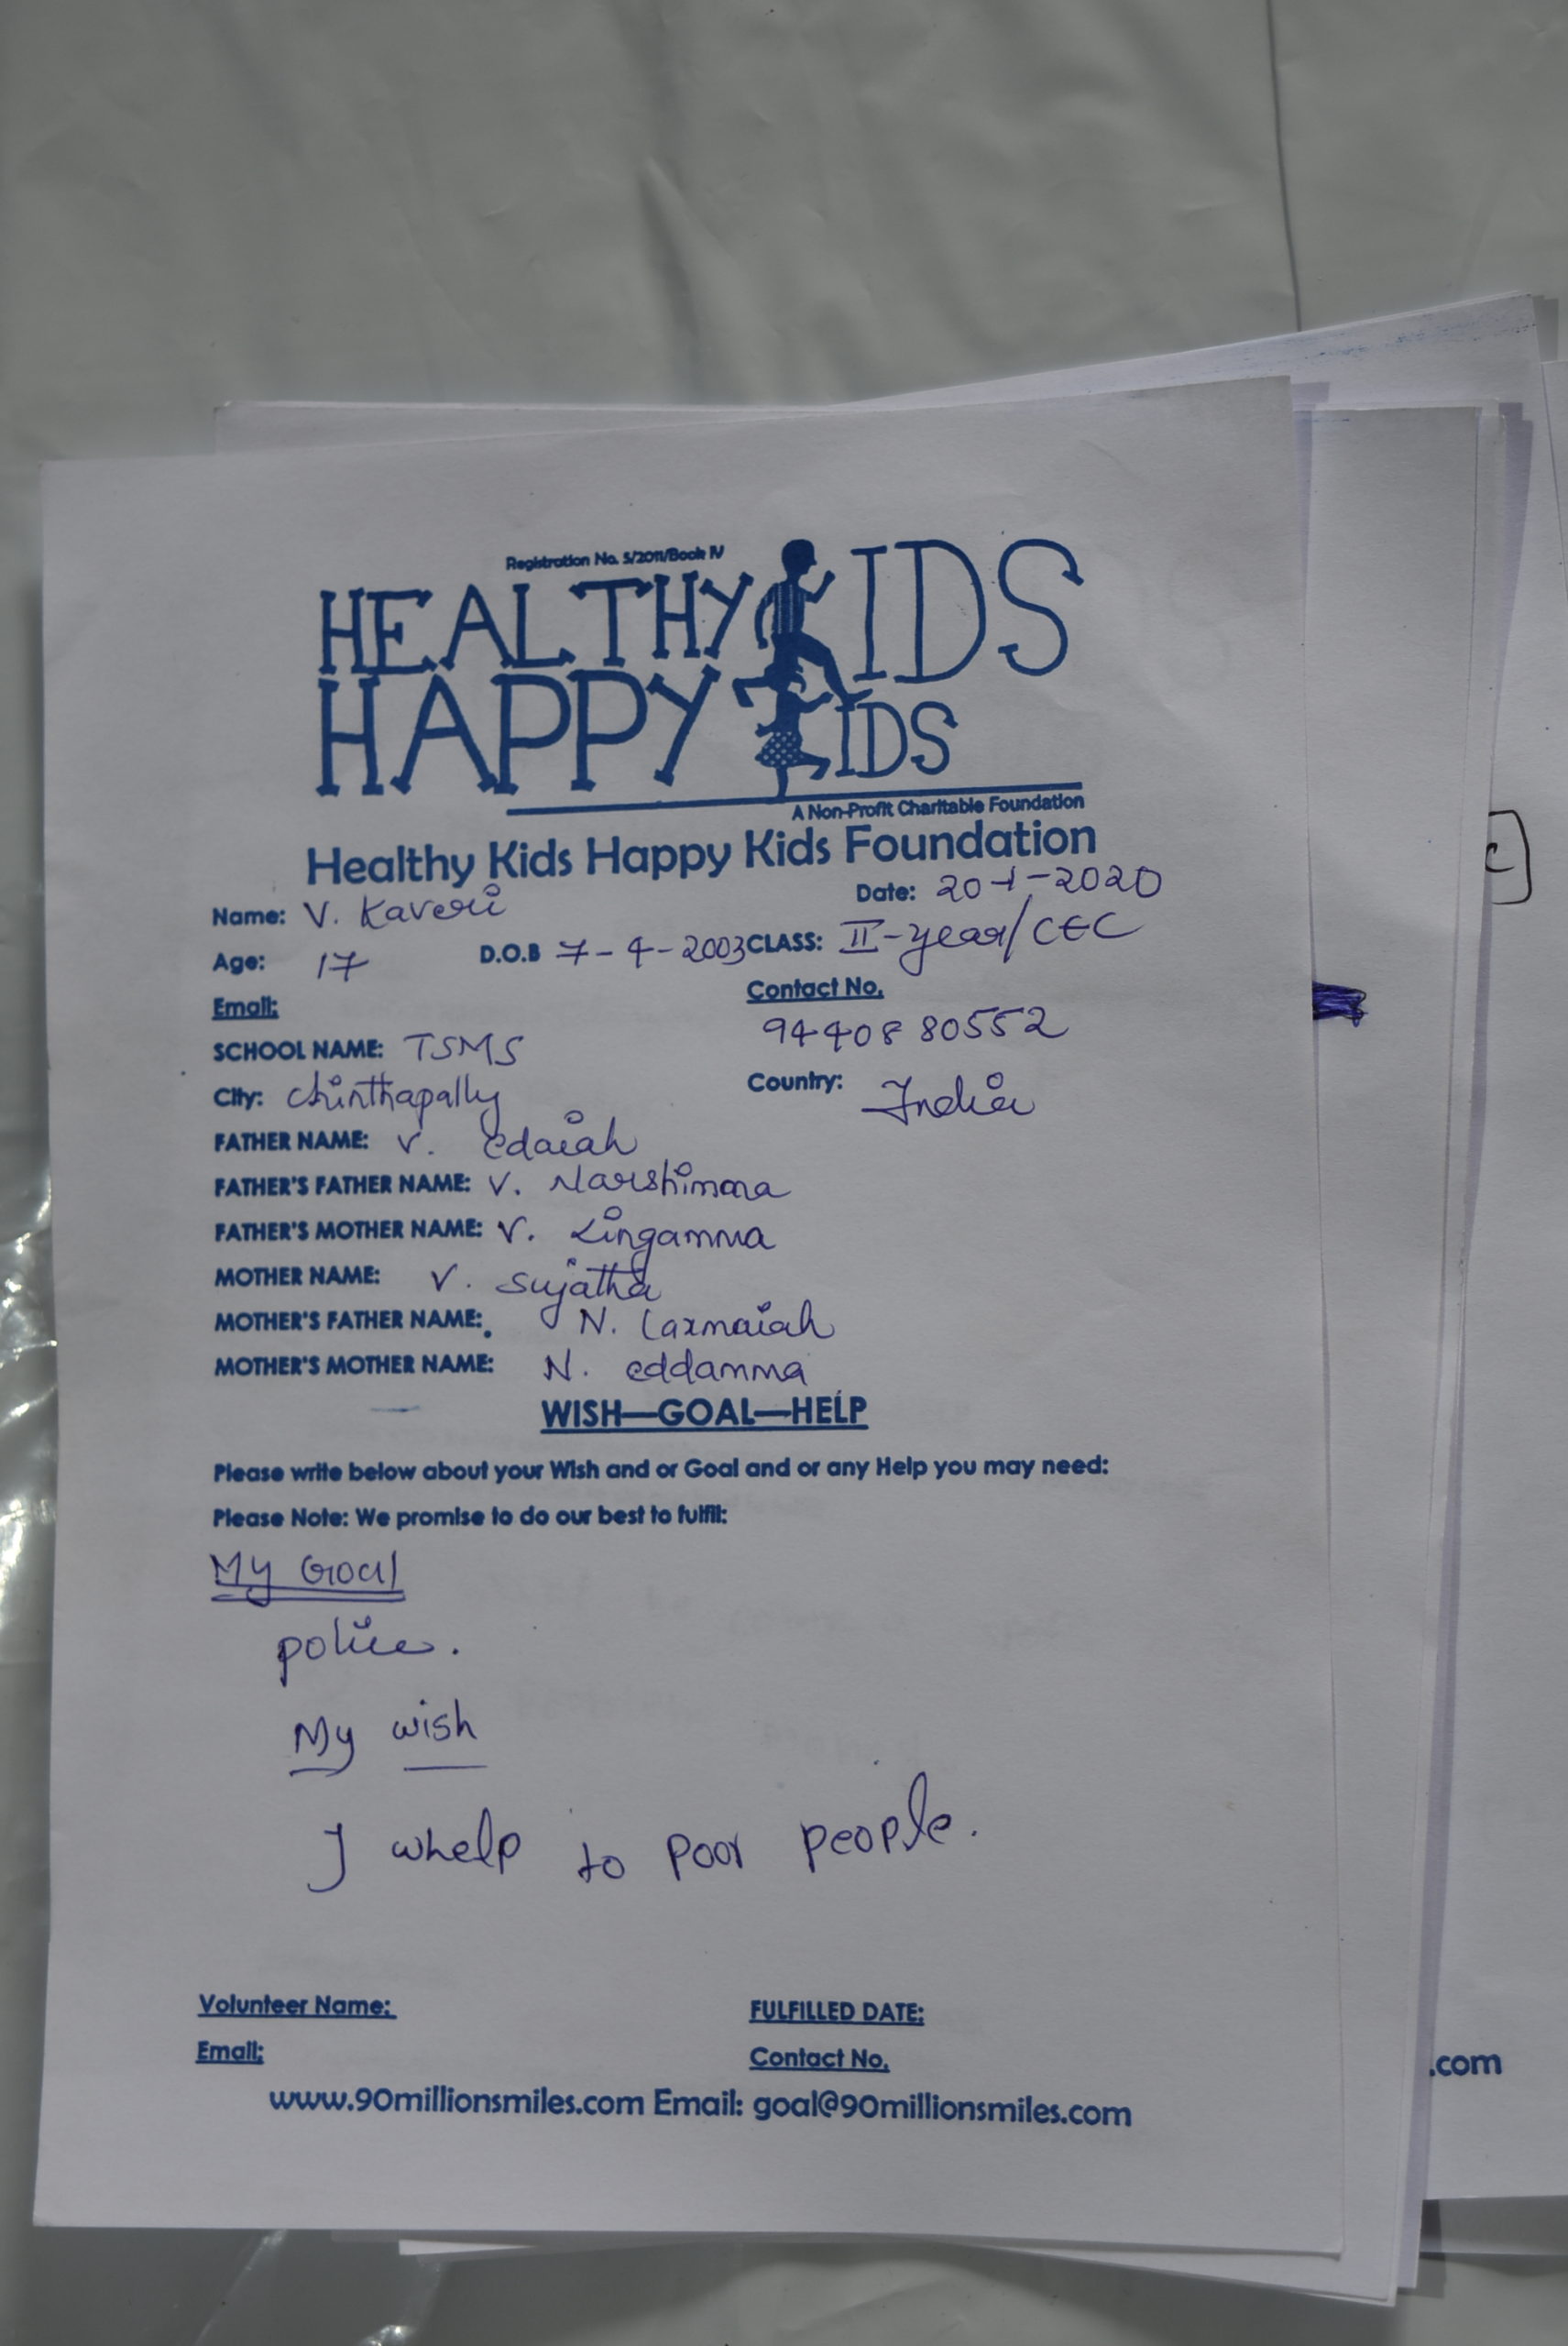 Registration No. 5/2011/Book IV
HEALTHY KIDS
HAPPY KIDS
A Non-Profit Charitable Foundation
Healthy Kids Happy Kids Foundation
Name: V. Kaveri Date: 20-1-2020
Age: 17 D.O.B 7-4-2003 CLASS: II-year/CEC
Email: Contact No.
SCHOOL NAME: TSMS 9440880552
City: chinthapally Country: India
FATHER NAME: V. edaiah
FATHER'S FATHER NAME: V. Narshimma
FATHER'S MOTHER NAME: V. Lingamma
MOTHER NAME: V. Sujatha
MOTHER'S FATHER NAME: N. Laxmaiah
MOTHER'S MOTHER NAME: N. eddamma
WISH—GOAL—HELP
Please write below about your Wish and or Goal and or any Help you may need:
Please Note: We promise to do our best to fulfil:
My Goal
police.
My wish
I whelp to poor people.
Volunteer Name: FULFILLED DATE:
Email: Contact No.
www.90millionsmiles.com Email: goal@90millionsmiles.com
.com